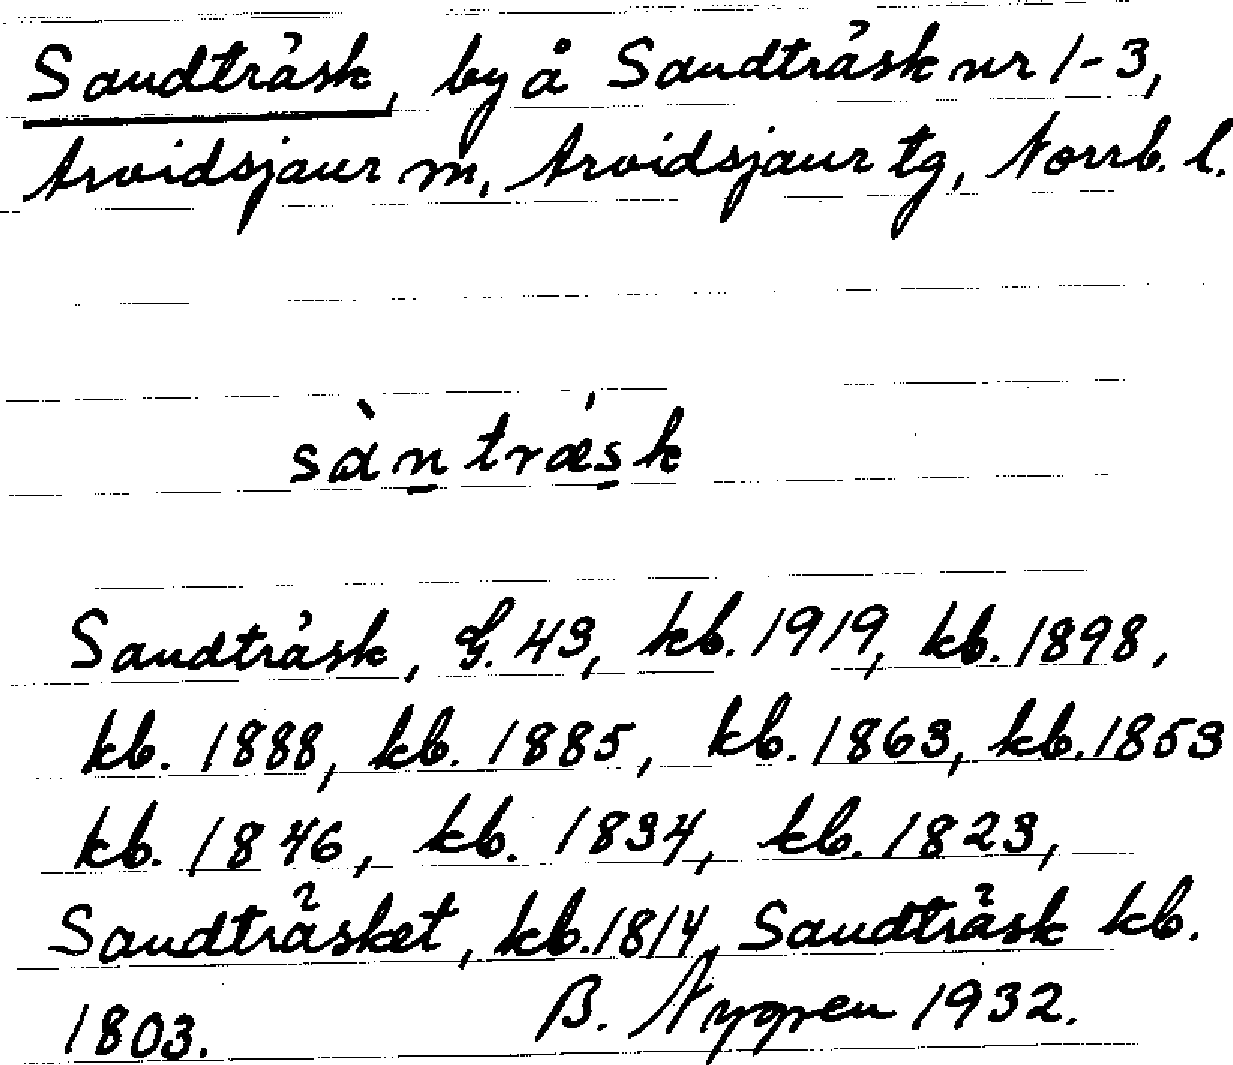 Sandträsk, by å Sandträsk nr 1-3,
Arvidsjaur sn, Arvidsjaur tg, Norrb. l.
sàntræsk
Sandträsk, G. 43, kb. 1919, kb. 1898,
kb. 1888, kb. 1885, kb. 1863, kb. 1853
kb. 1846, kb. 1834, kb. 1823,
Sandträsket, kb. 1814, Sandträsk kb.
1803. B. Nygren 1932.